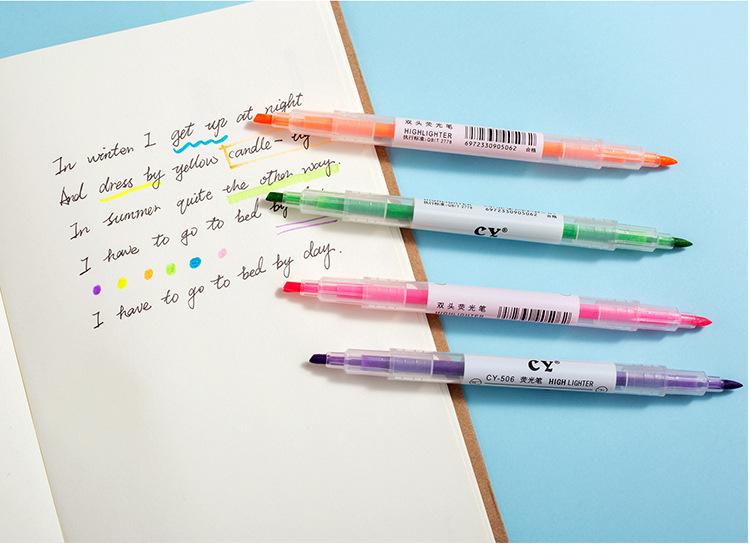 In winter I get up at night
And dress by yellow candle-
In summer quite the other way.
I have to go to bed by
I have to go to bed by day.
双头荧光笔
HIGHLIGHTER
执行标准:QB/T 2778
6972330905062
合格
6972330905062
合格
CY®
双头荧光笔
HIGHLIGHTER
CY®
CY-506 荧光笔 HIGHLIGHTER